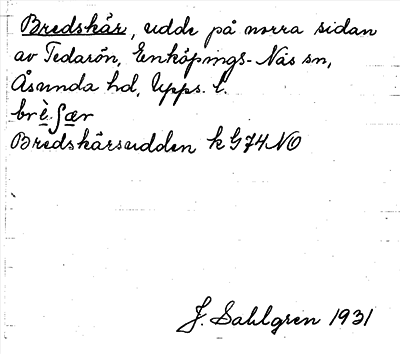 Bredskär, udde på norra sidan
av Tedarön, Enköpings-Näs sn,
Åsunda hd, Upps. l.
brè̱.ʃæ̱r
Bredskärsudden k G74NO
J. Sahlgren 1931